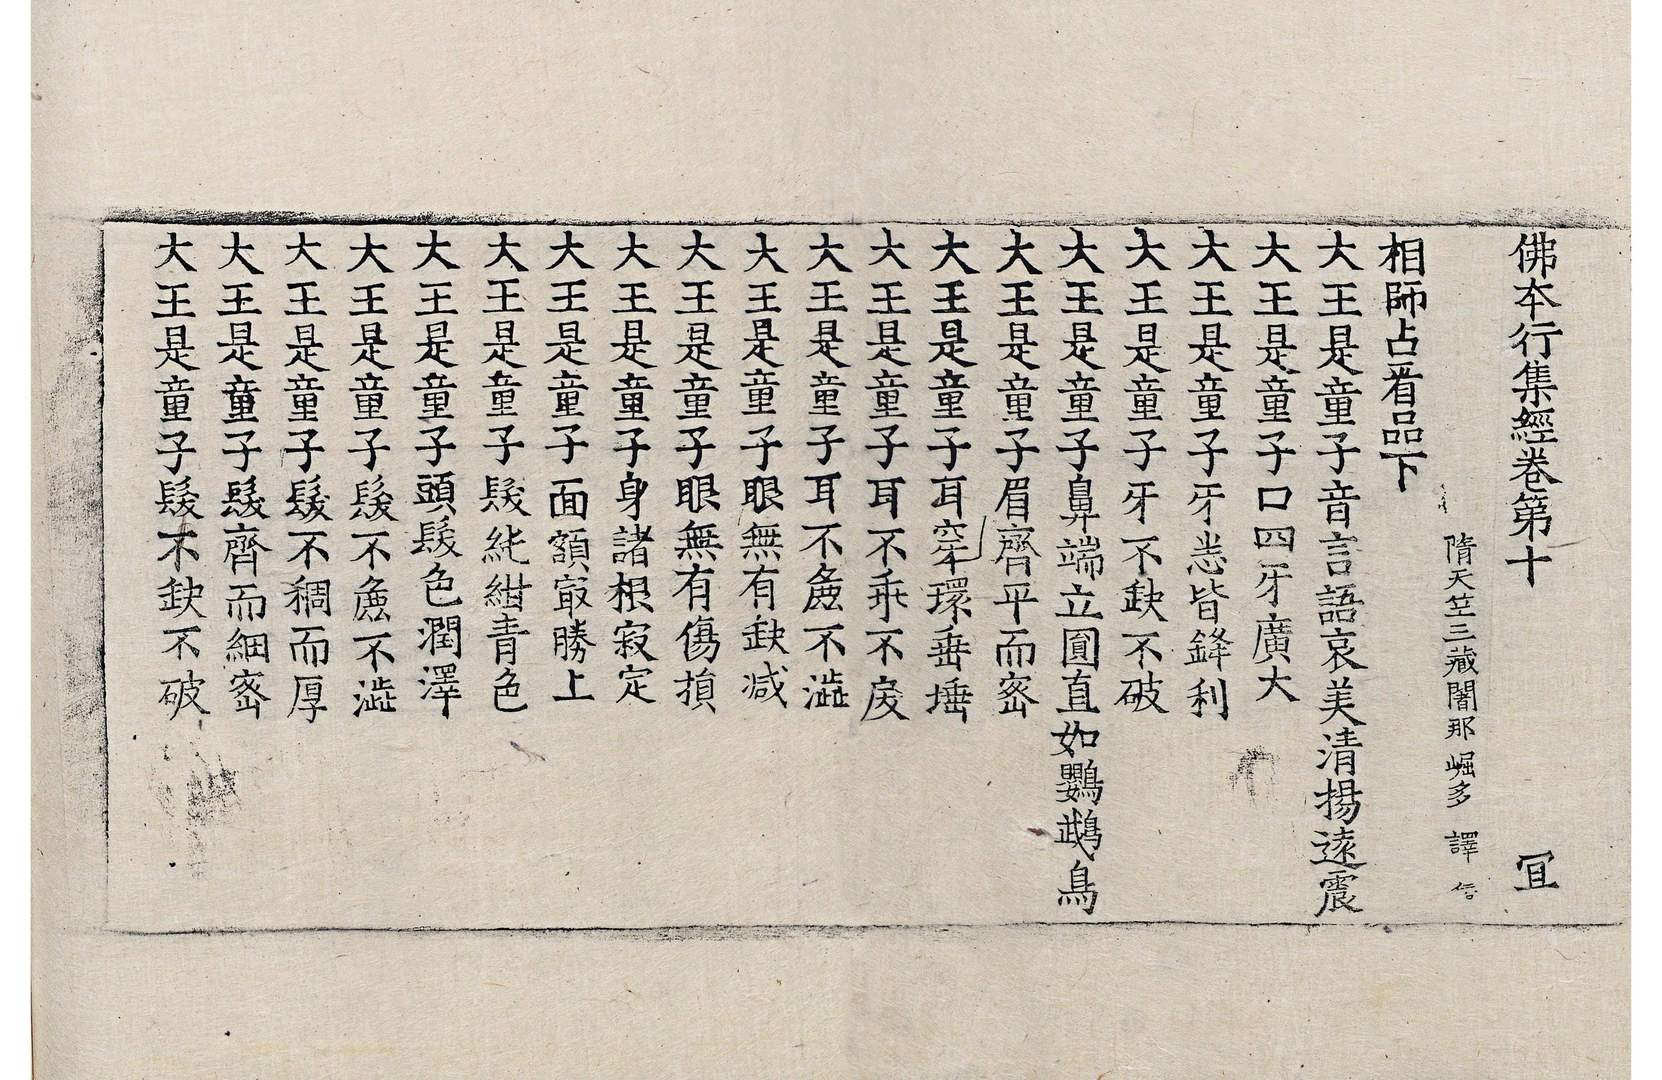 佛夲行集經卷第十 冝
隋天竺三藏闍那崛多 譯 信
相師占㸔品下
大王是童子音言語哀美清揚遠震
大王是童子口四牙廣大
大王是童子牙悉皆鋒利
大王是童子牙不缺不破
大王是童子鼻端立圓直如鸚鵡鳥
大王是童子眉齊平而宻
大王是童子耳穿環垂埵
大王是童子耳不乖不戾
大王是童子耳不麁不澁
大王是童子眼無有缺减
大王是童子眼無有傷損
大王是童子身諸根寂定
大王是童子面額㝡勝上
大王是童子髮純紺青色
大王是童子頭髮色潤澤
大王是童子髮不麁不澁
大王是童子髮不稠而厚
大王是童子髮齊而細宻
大王是童子髮不缺不破